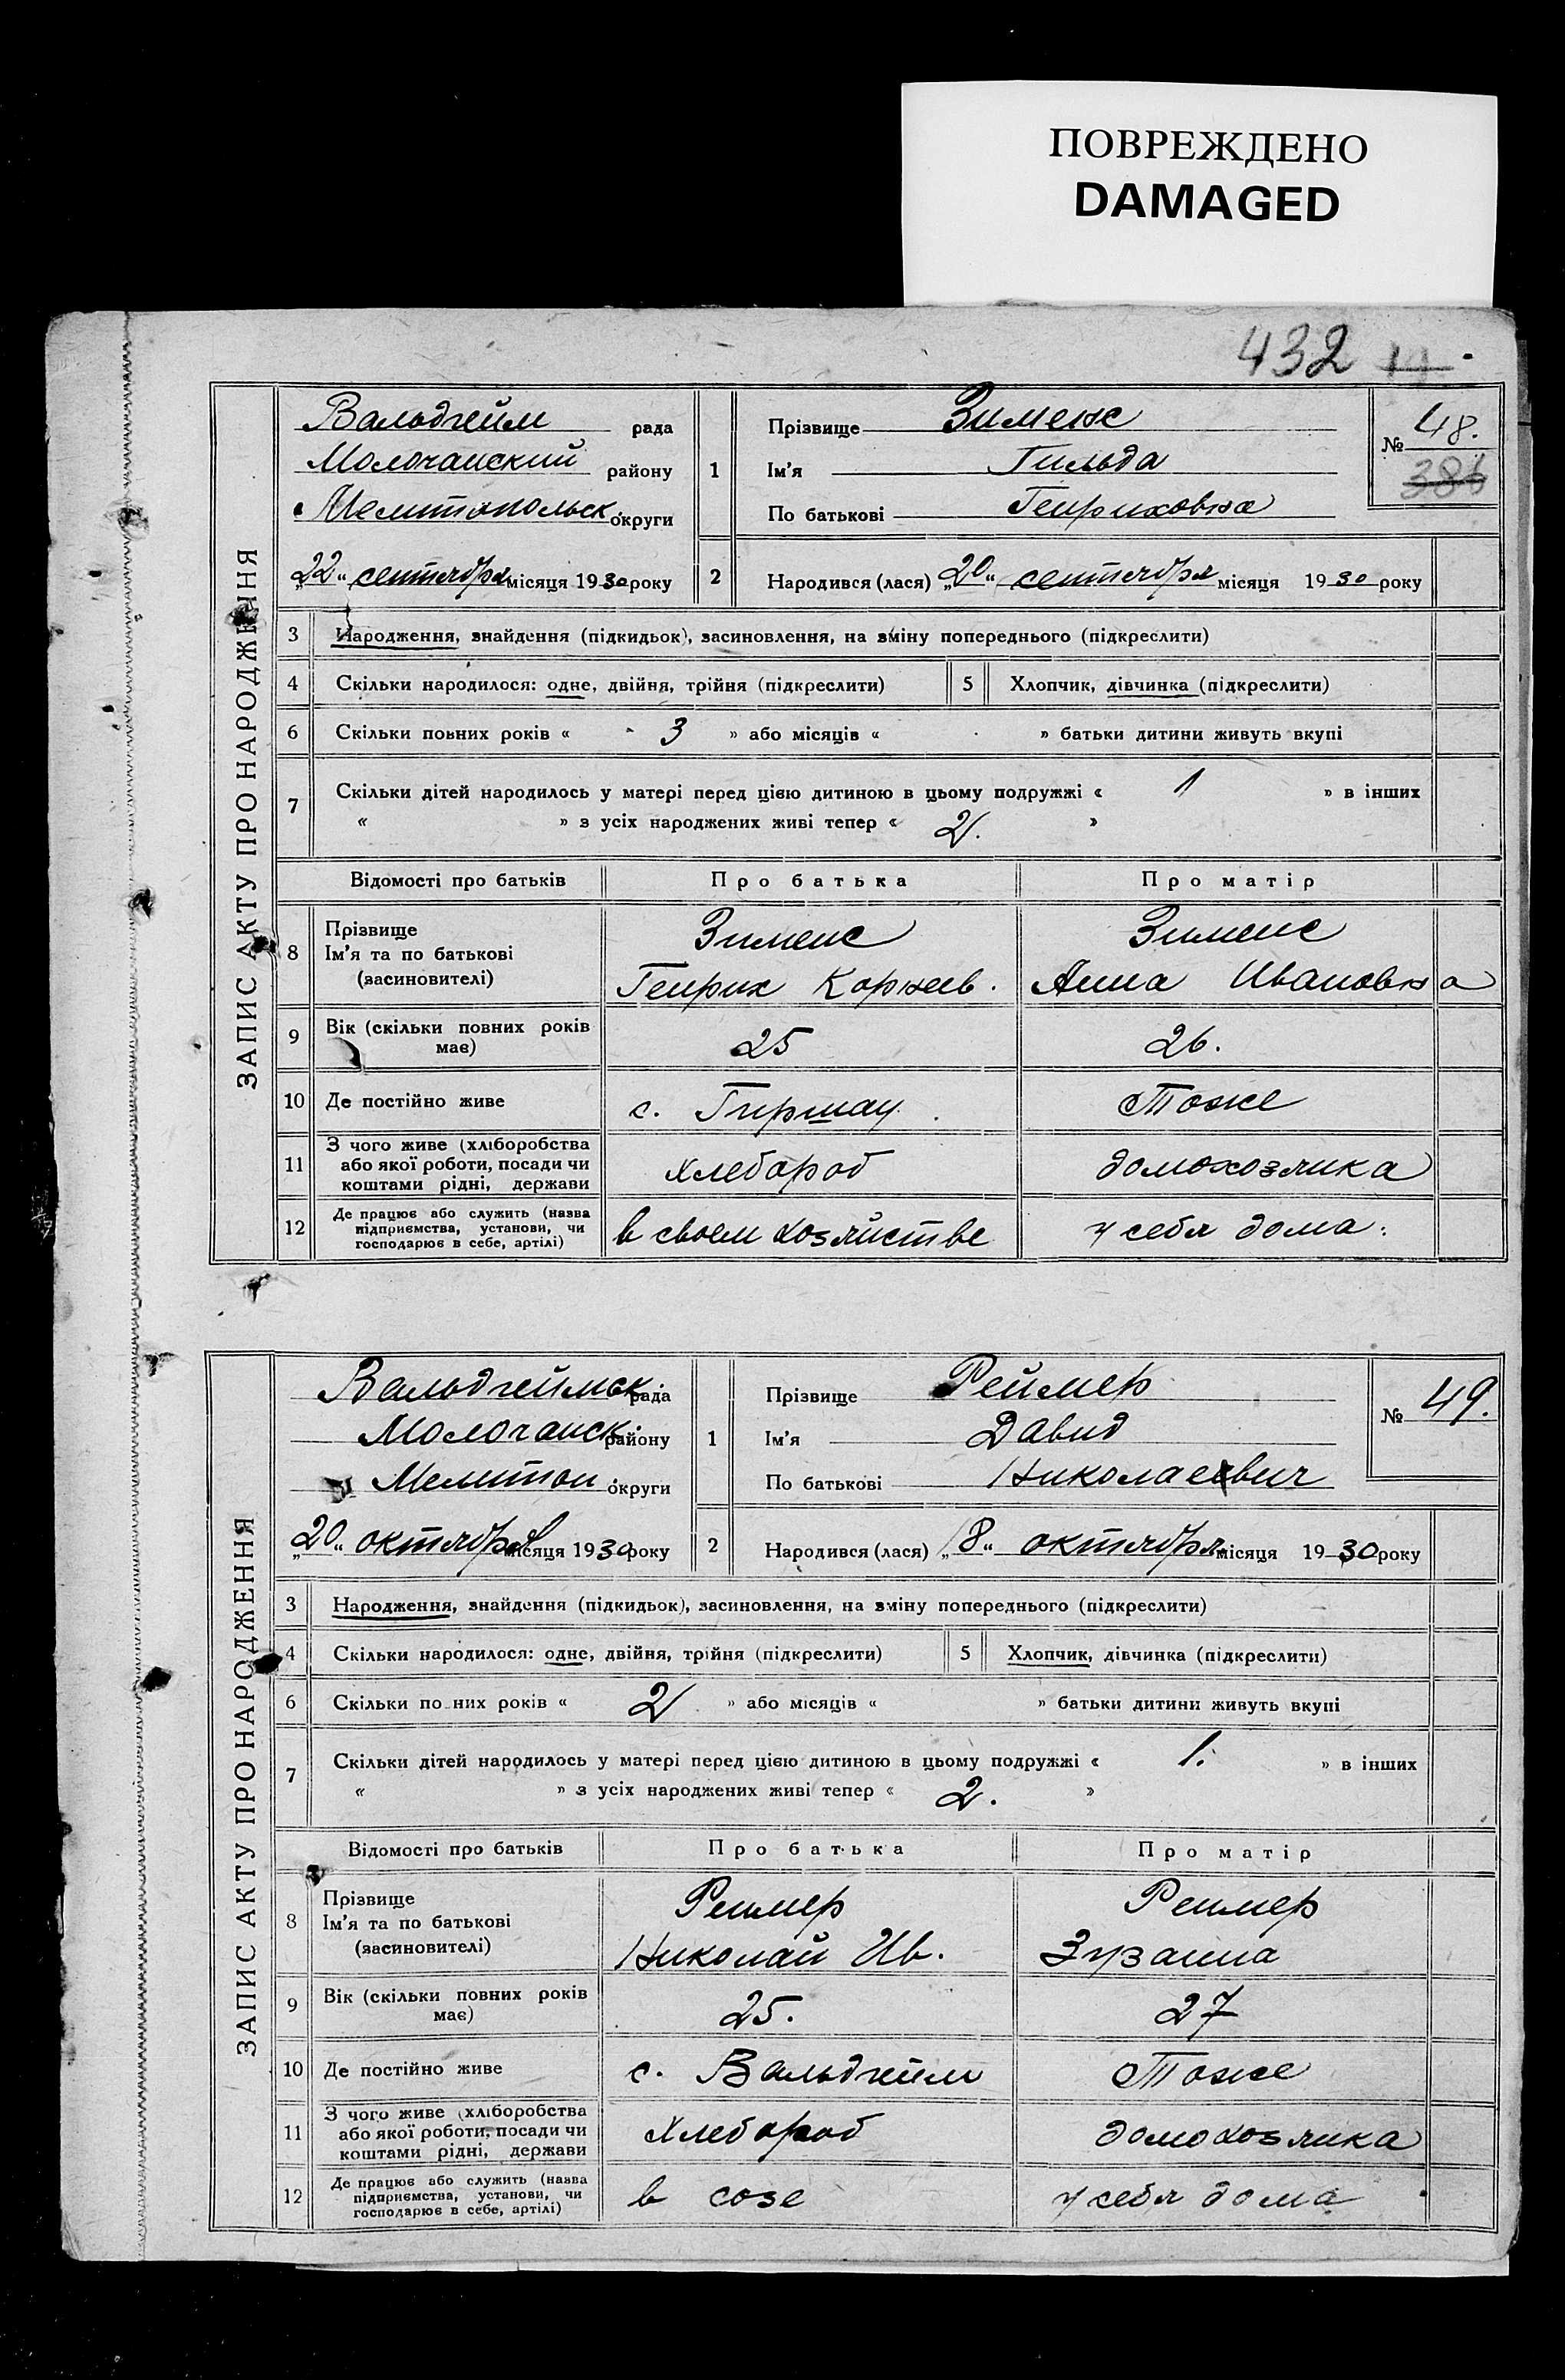 ПОВРЕЖДЕНО
DAMAGED
432
ЗАПИС АКТУ ПРО НАРОДЖЕННЯ
Вальдгейм рада
Молочанский району
Мелитопольск. округи
„22“ сентября місяця 1930 року
1
Прізвище Зименс
Ім’я Гильда
По батькові Генриховна
№ 48.
386
2 Народився (лася) „20“ сентября місяця 1930 року
3 Народження, знайдення (підкидьок), засиновлення, на зміну попереднього (підкреслити)
4 Скільки народилося: одне, двійня, трійня (підкреслити) 5 Хлопчик, дівчинка (підкреслити)
6 Скільки повних років « 3 » або місяців « » батьки дитини живуть вкупі
7 Скільки дітей народилось у матері перед цією дитиною в цьому подружжі « 1 » в інших
« » з усіх народжених живі тепер « 2. »
Відомості про батьків Про батька Про матір
8 Прізвище Зименс Зименс
Ім’я та по батькові
(засиновителі) Генрих Корнеев. Анна Ивановна
9 Вік (скільки повних років має) 25 26.
10 Де постійно живе с. Гиршау. Тоже
11 З чого живе (хліборобства
або якої роботи, посади чи хлебороб домохозяика
коштами рідні, держави
12 Де працює або служить (назва
підприємства, установи, чи в своем хозяйстве у себя дома.
господарює в себе, артілі)
ЗАПИС АКТУ ПРО НАРОДЖЕННЯ
Вальдгеймск. рада
Молочанск. району
Мелитоп. округи
„20“ октября місяця 1930 року
1
Прізвище Реймер
Ім’я Давид
По батькові Николаевич
№ 49.
2 Народився (лася) „18“ октября місяця 1930 року
3 Народження, знайдення (підкидьок), засиновлення, на зміну попереднього (підкреслити)
4 Скільки народилося: одне, двійня, трійня (підкреслити) 5 Хлопчик, дівчинка (підкреслити)
6 Скільки повних років « 2 » або місяців « » батьки дитини живуть вкупі
7 Скільки дітей народилось у матері перед цією дитиною в цьому подружжі « 1. » в інших
« » з усіх народжених живі тепер « 2. »
Відомості про батьків Про батька Про матір
8 Прізвище Реимер Реимер
Ім’я та по батькові
(засиновителі) Николай Ив. Зузанна
9 Вік (скільки повних років має) 25. 27
10 Де постійно живе с. Вальдгейм Тоже
11 З чого живе (хліборобства
або якої роботи, посади чи Хлебороб домохозяика
коштами рідні, держави
12 Де працює або служить (назва
підприємства, установи, чи в созе у себя дома
господарює в себе, артілі)